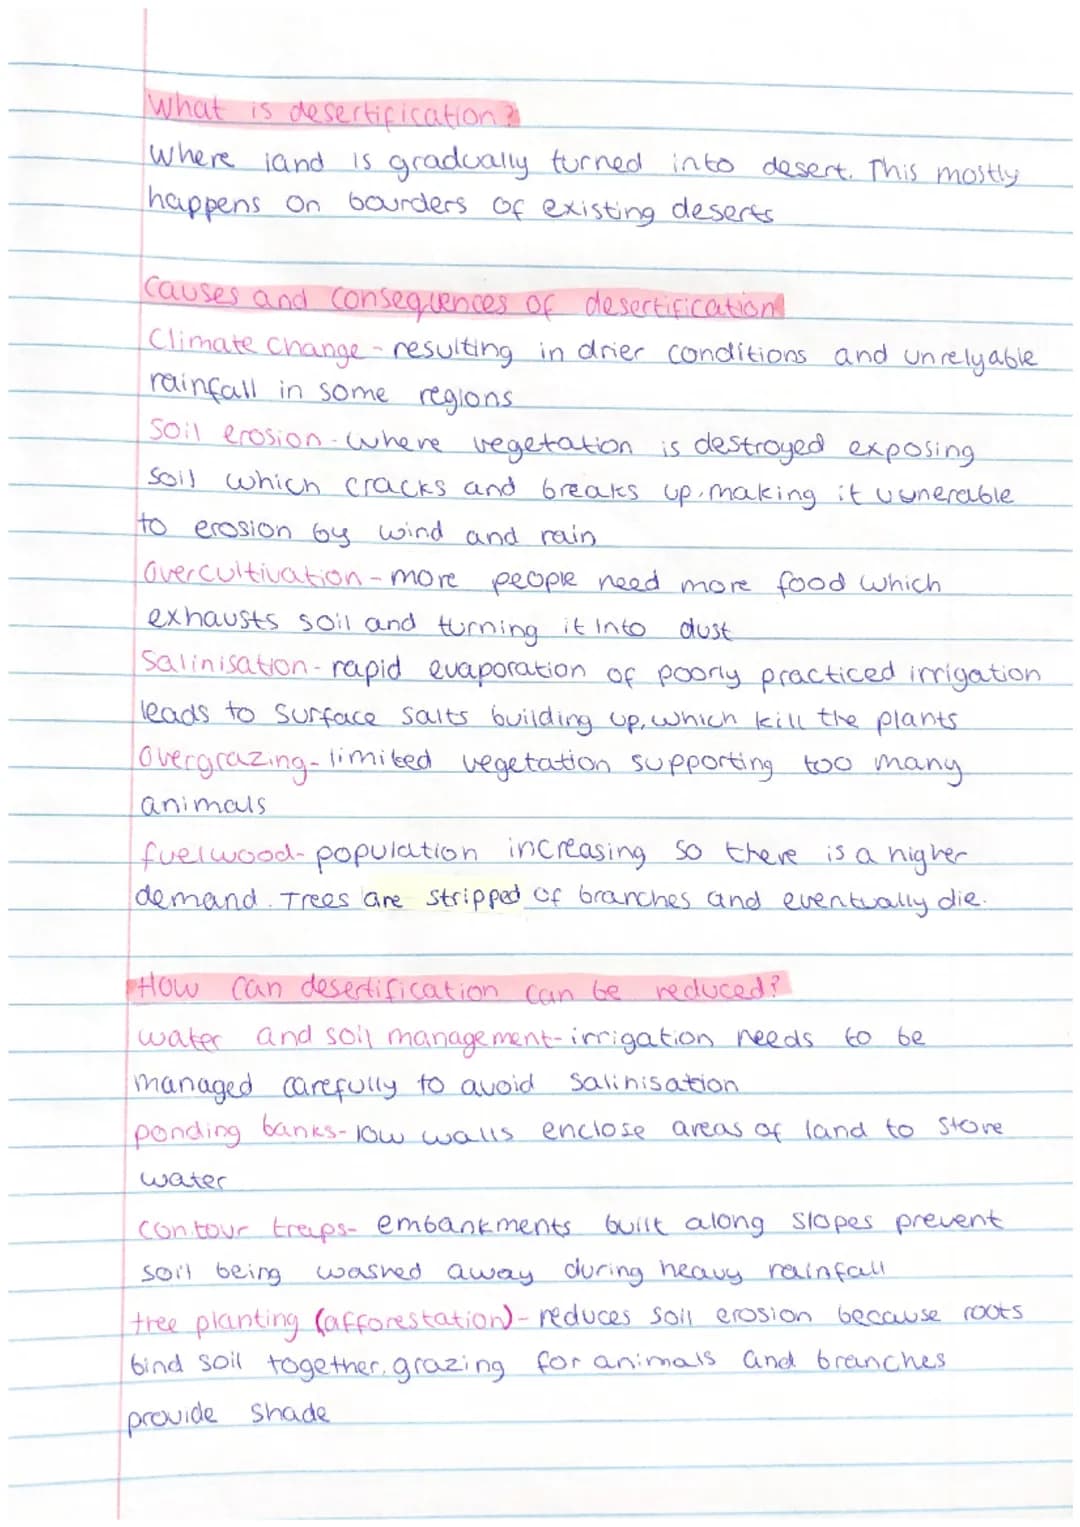 What is desertification?
Where land is gradually turned into desert. This mostly
happens on bourders of existing deserts
Causes and Consequences of desertification
Climate change - resulting in drier conditions and unrelyable
rainfall in some regions
Soil erosion - where vegetation is destroyed exposing
soil which cracks and breaks up, making it vunerable
to erosion by wind and rain
Overcultivation - more people need more food which
exhausts soil and turning it into dust
Salinisation - rapid evaporation of poorly practiced irrigation
leads to surface salts building up, which kill the plants
Overgrazing - limited vegetation supporting too many
animals
fuelwood - population increasing so there is a higher
demand. Trees are stripped of branches and eventually die.
How can desertification can be reduced?
water and soil management - irrigation needs to be
managed carefully to avoid salinisation
ponding banks - low walls enclose areas of land to store
water
contour traps - embankments built along slopes prevent
soil being washed away during heavy rainfall
tree planting (afforestation) - reduces soil erosion because roots
bind soil together, grazing for animals and branches
provide shade